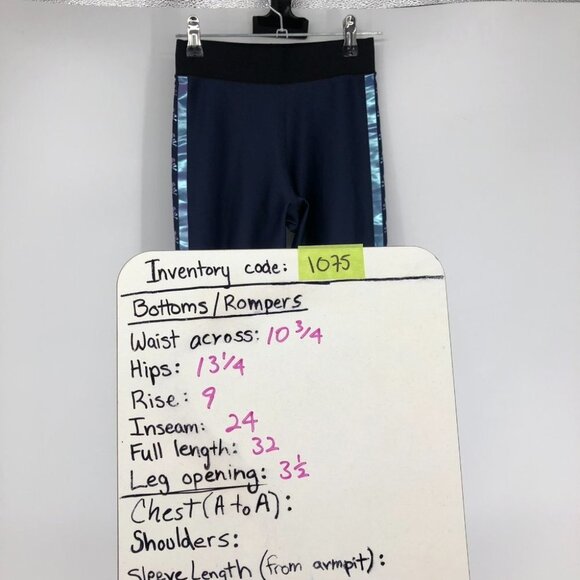 Inventory code: 1075
Bottoms/Rompers
Waist across: 10 3/4
Hips: 13 1/4
Rise: 9
Inseam: 24
Full length: 32
Leg opening: 3 1/2
Chest (A to A):
Shoulders:
Sleeve Length (from armpit):